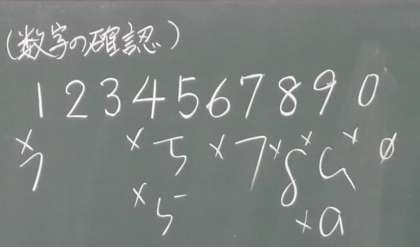 (数字の確認)
1 2 3 4 5 6 7 8 9 0
× × 5 × 7 × 8 × 9 × ø
× 5 × a